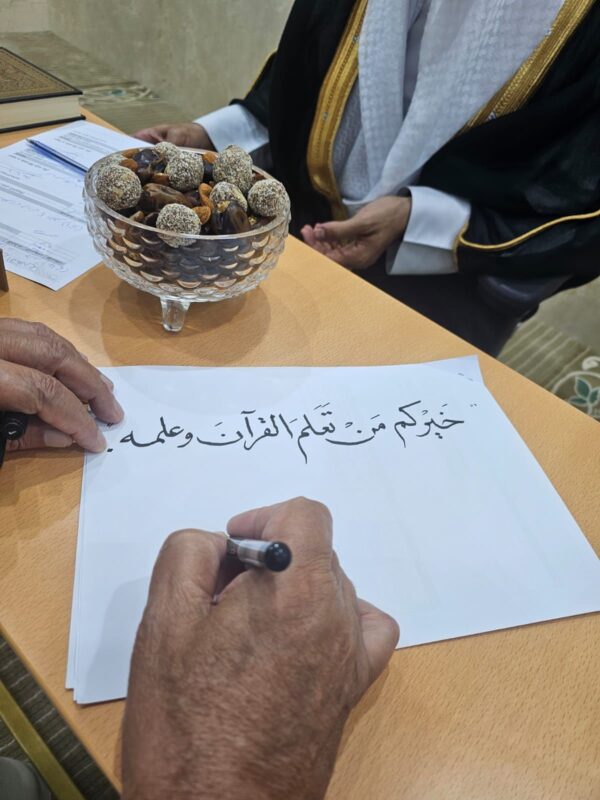 " خَيْركم مَنْ تَعَلم القُرآنَ وعلمه .